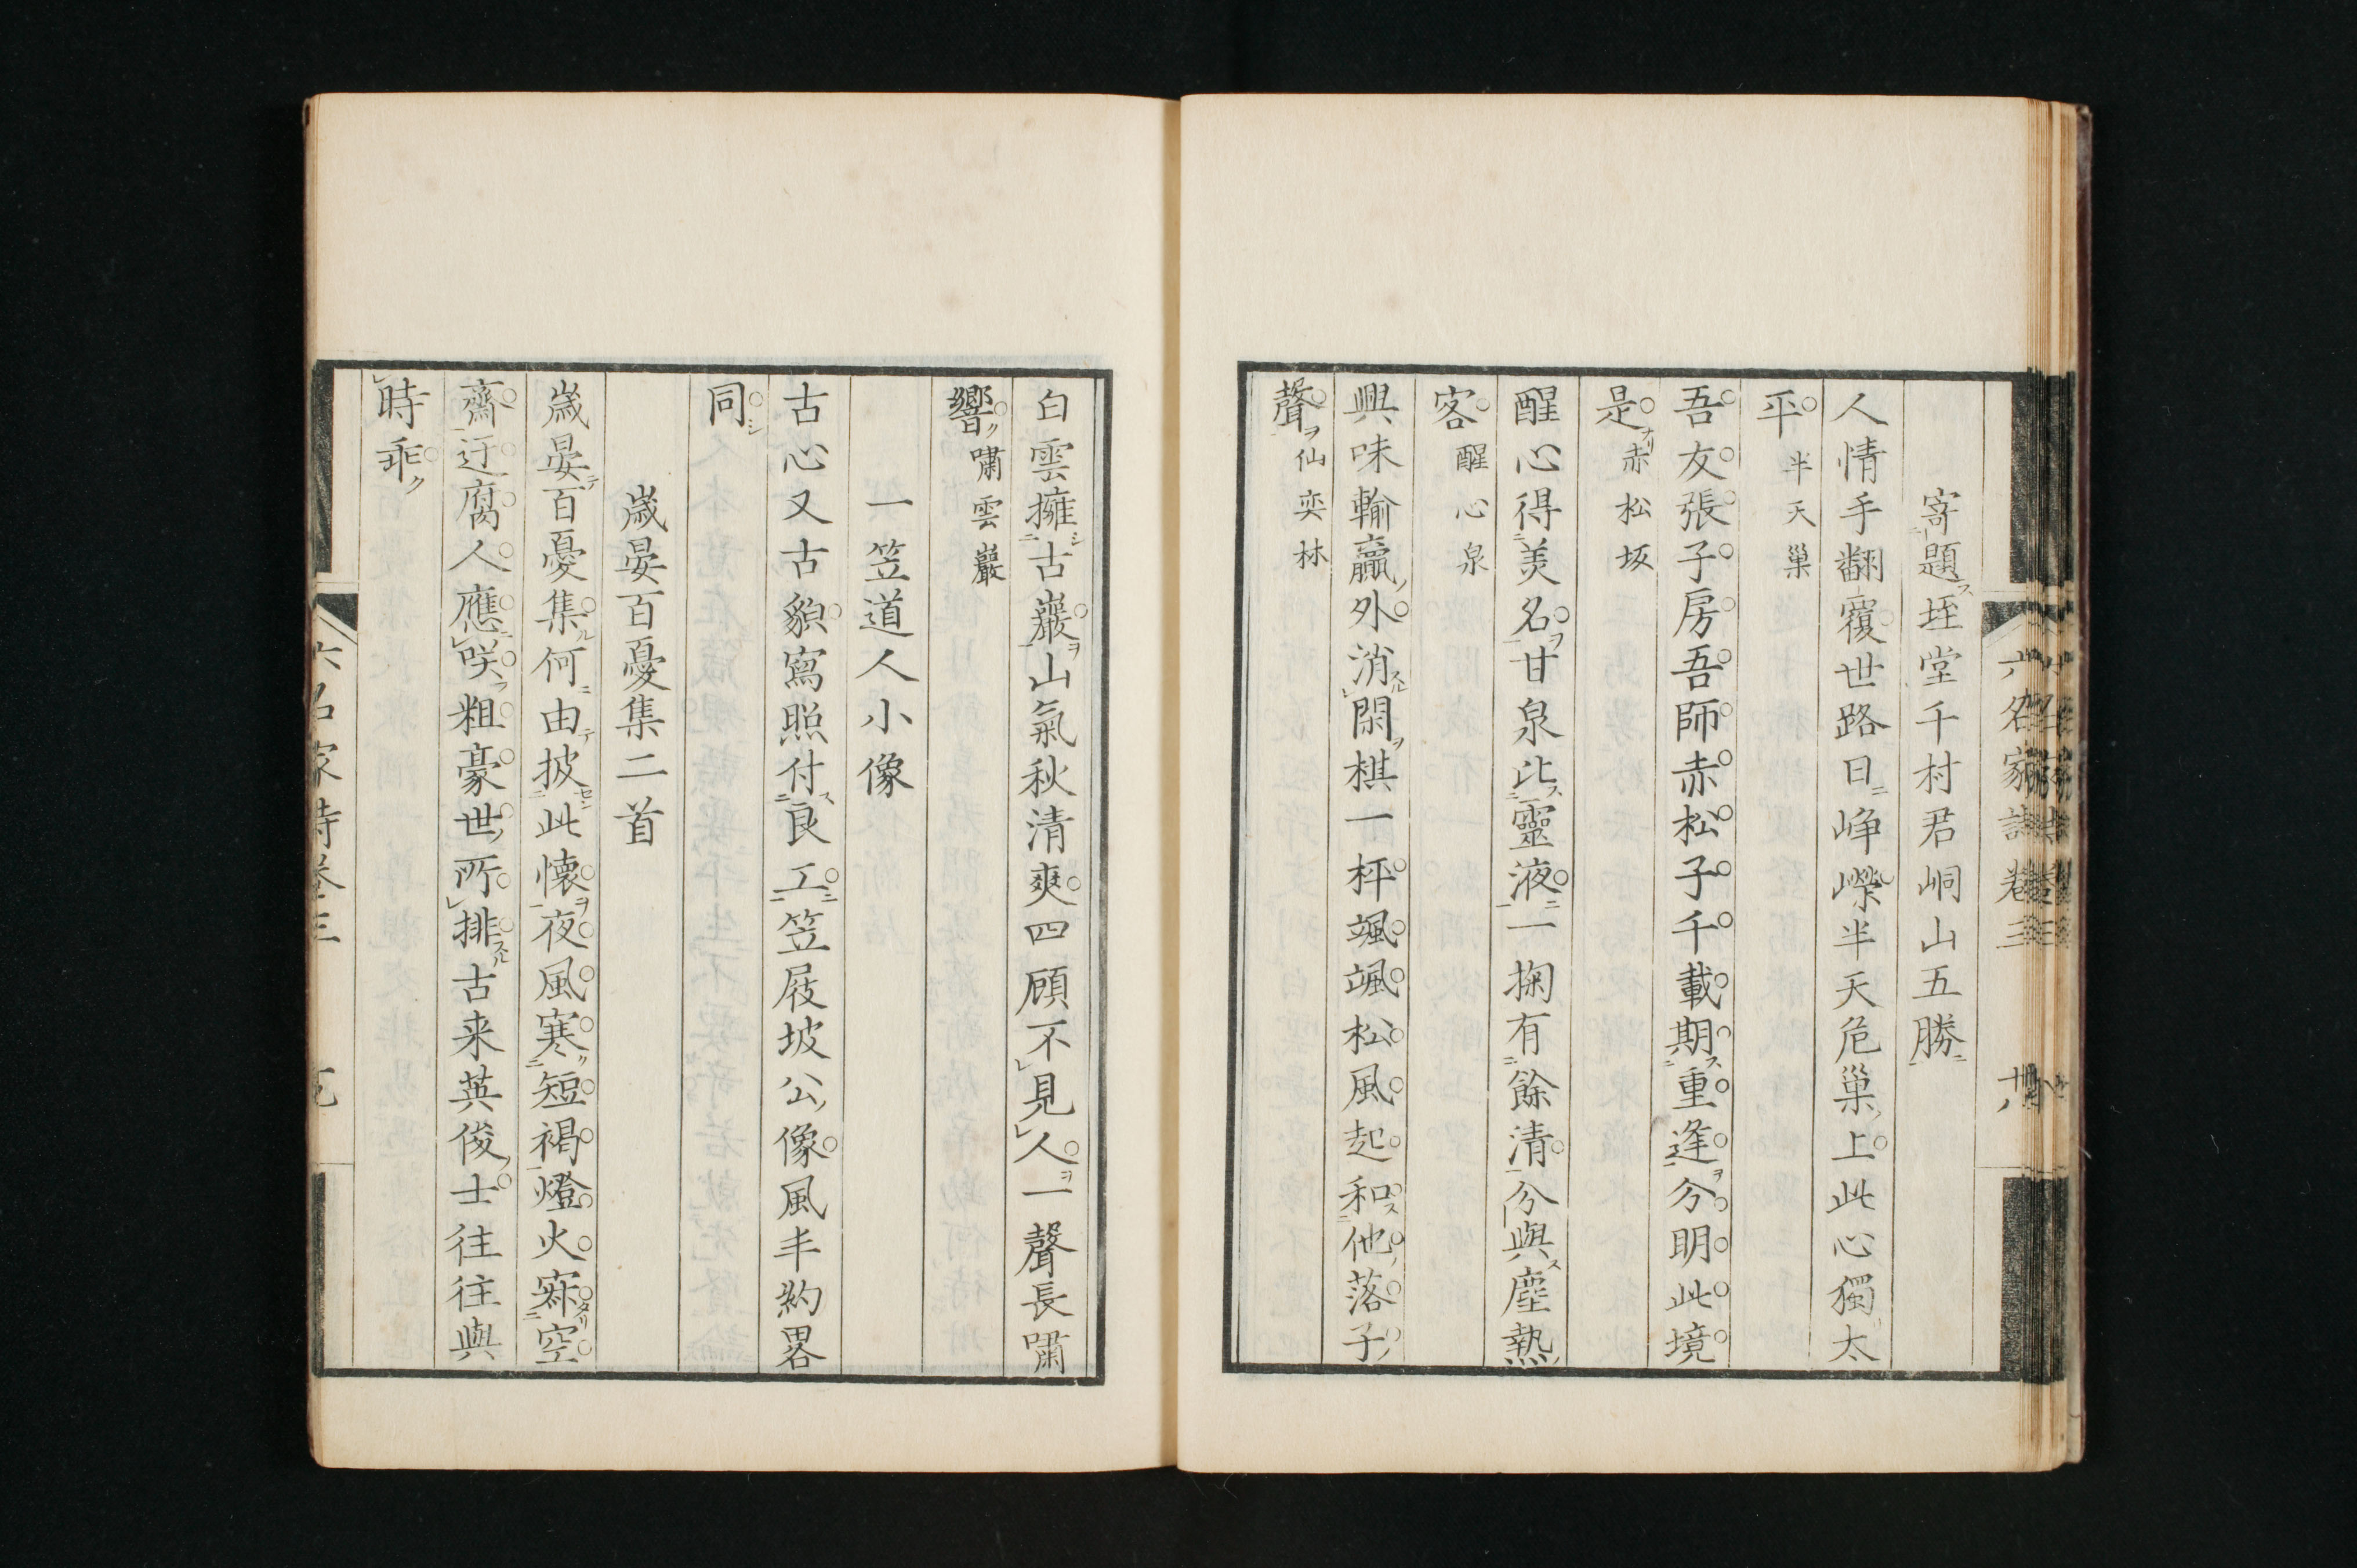 六名家詩卷三 十八
寄題垤堂千村君峒山五勝
人情手飜覆世路日崢嶸半天危巢上此心獨太
平 半天巢
吾友張子房吾師赤松子千載期重逢分明此境
是 赤松坂
醒心得美名甘泉比靈液一掬有餘清分與塵熱
客 醒心泉
興味輸贏外消閑棋一枰颯颯松風起和他落子
聲 仙奕林
白雲擁古巖山氣秋清爽四顧不見人一聲長嘯
響 嘯雲巖
一笠道人小像
古心又古貌寫照付良工笠屐坡公像風丰約畧
同
歲晏百憂集二首
歲晏百憂集何由披此懷夜風寒短褐燈火寂空
齋迂腐人應咲粗豪世所排古来英俊士往往與
時乖
六名家詩卷三